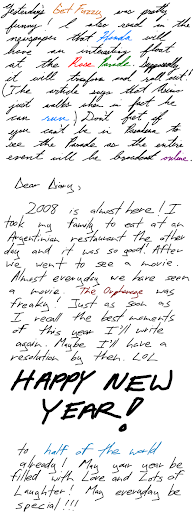 Yesterday's Get Fuzzy was pretty
funny! I also read in the
newspaper that Honda will
have an interesting float
at the Rose Parade. Apparently
it will transform and roll out!
(The article says that Asimo
just walks when in fact he
can run.) Don't fret if
you can't be in Pasadena to
see the Parade as the entire
event will be broadcast online.
Dear Diary,
2008 is almost here! I
took my family to eat at an
Argentinian restaurant the other
day and it was so good! After
we went to see a movie.
Almost everyday we have seen
a movie. The Orphanage was
freaky! Just as soon as
I recall the best moments
of this year I'll write
again. Maybe I'll have a
resolution by then. LOL
HAPPY NEW
YEAR!
to half of the world
already! May your year be
filled with Love and Lots of
Laughter! May everyday be
special!!!